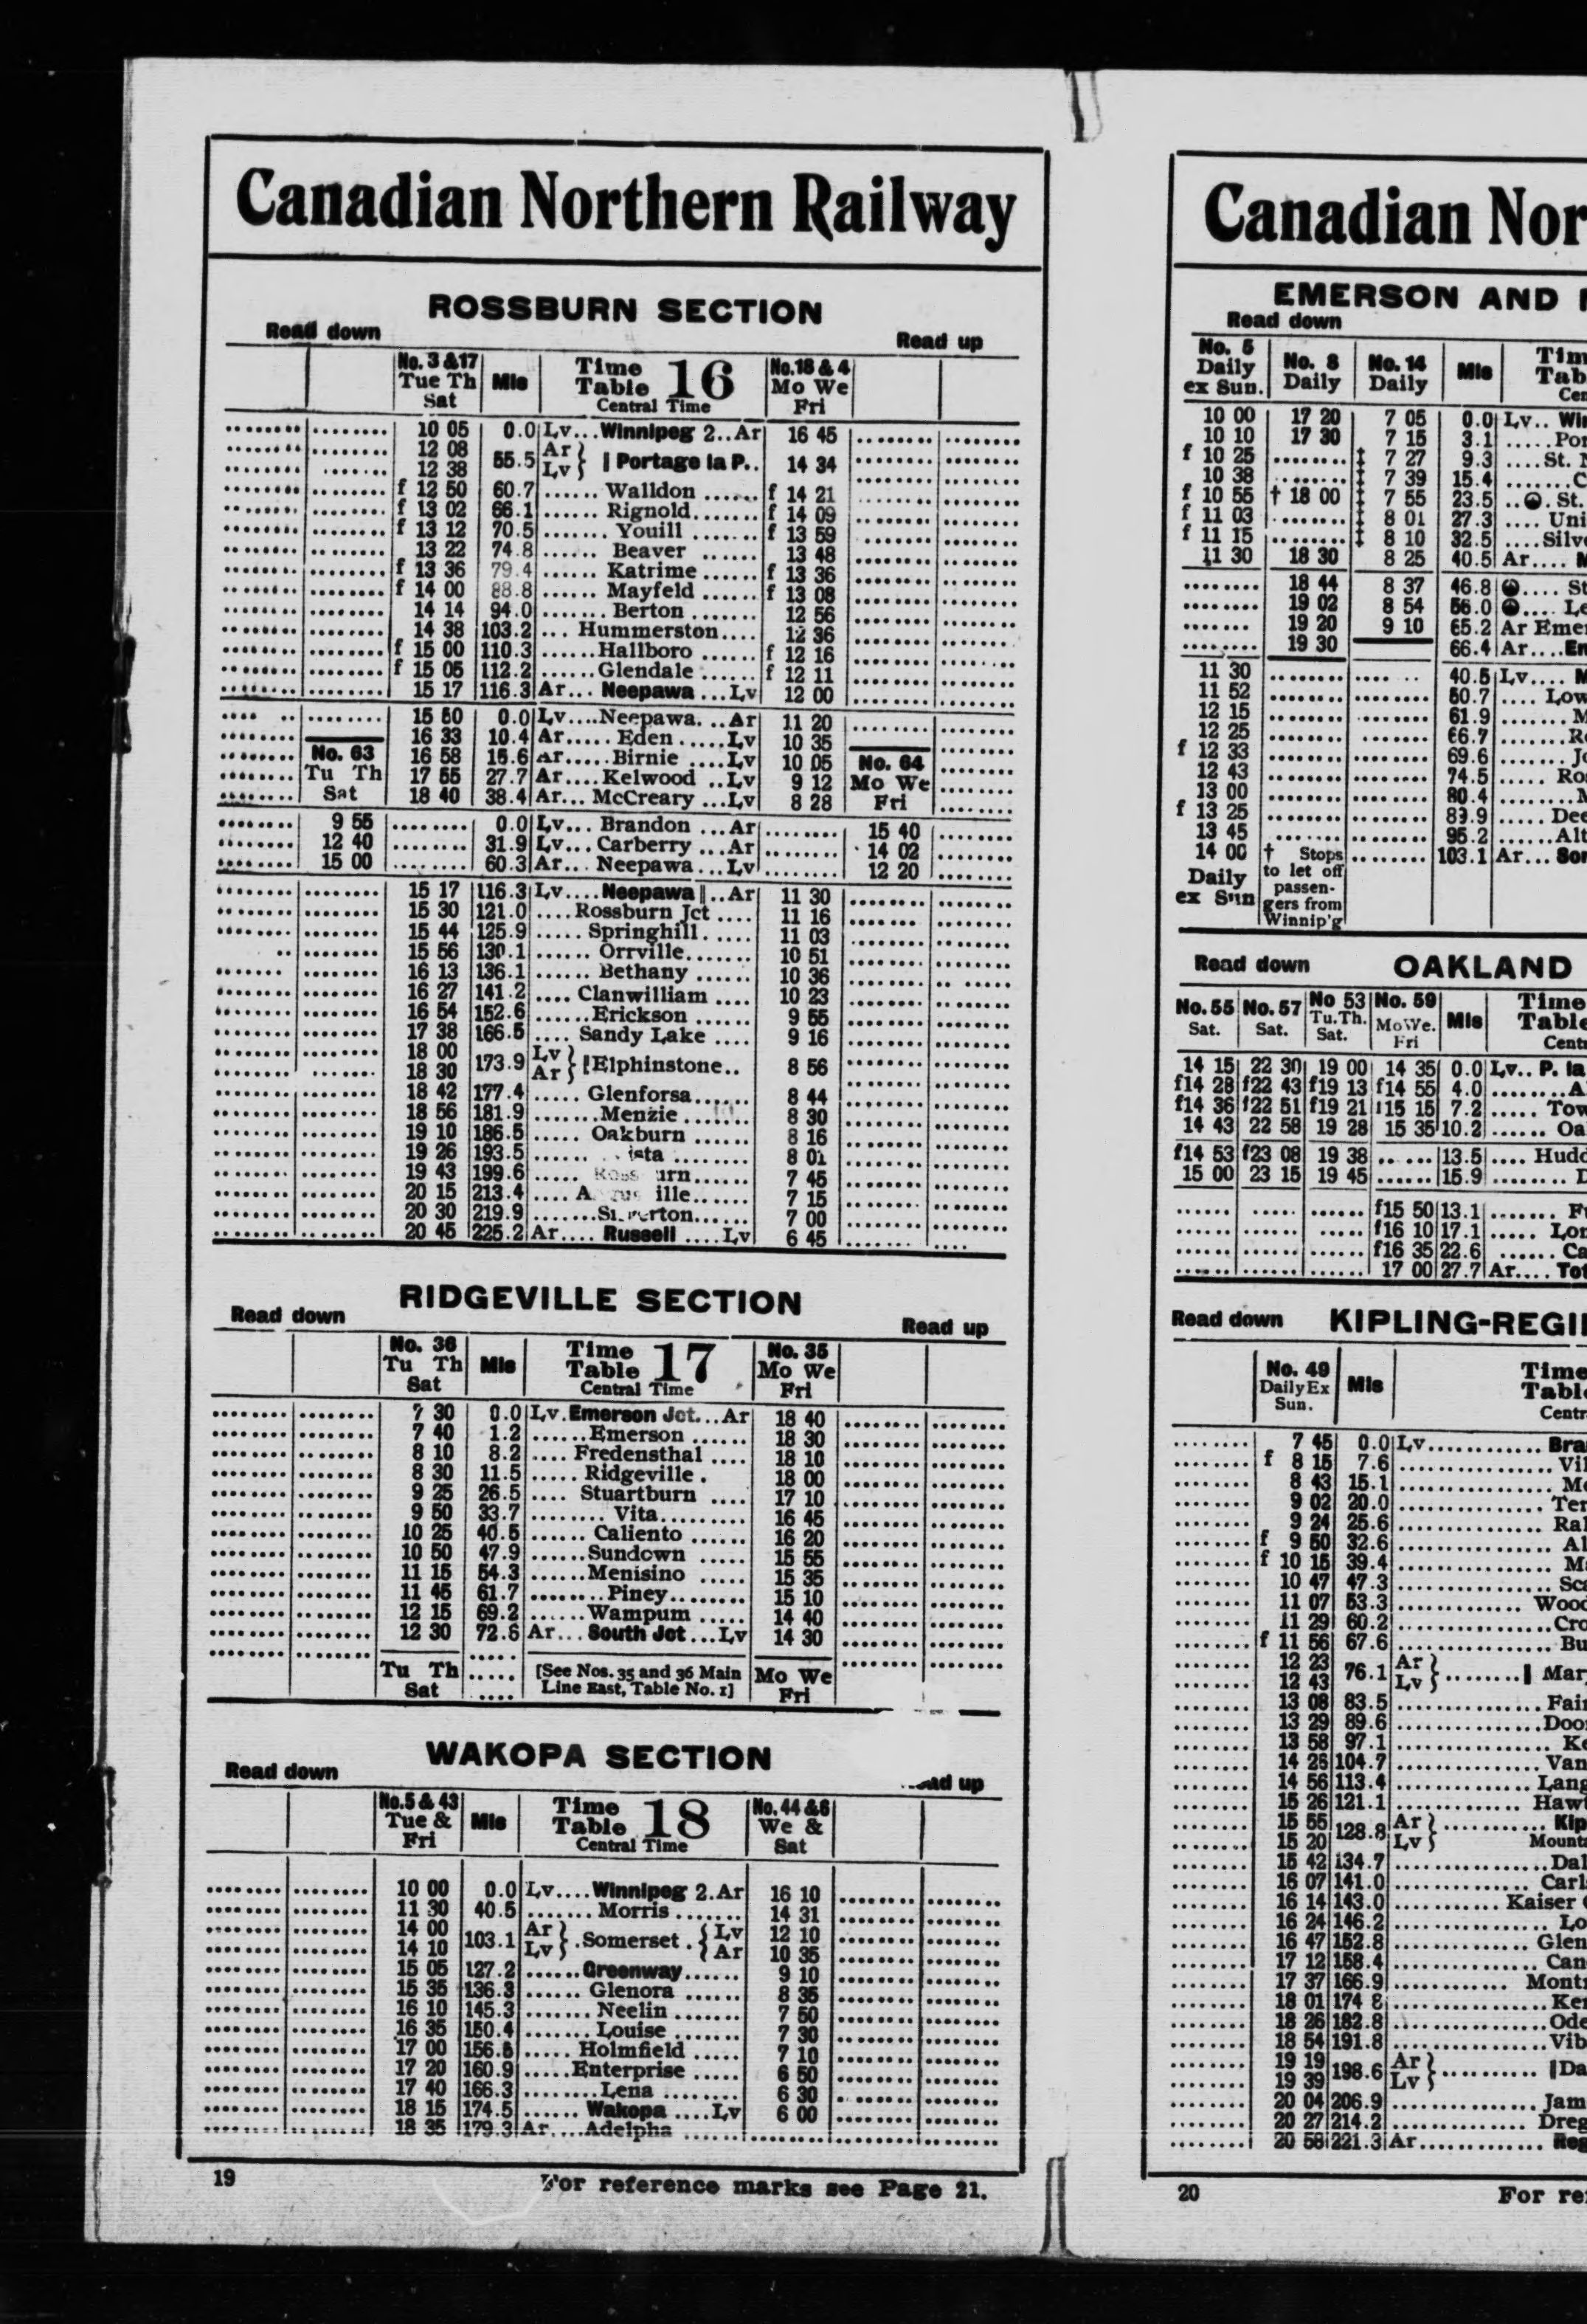 Canadian Northern Railway
ROSSBURN SECTION
Read down Read up
No. 3 &17 Tue Th Sat | Mls | Time Table 16 Central Time | No.18 & 4 Mo We Fri
10 05 0.0 Lv...Winnipeg 2..Ar 16 45
12 08 55.5 Ar } ‖ Portage la P.. 14 34
12 38 Lv }
f 12 50 60.7 ...... Walldon ...... f 14 21
f 13 02 66.1 ...... Rignold....... f 14 09
f 13 12 70.5 ....... Youill ....... f 13 59
13 22 74.8 ...... Beaver ...... 13 48
f 13 36 79.4 ...... Katrime ...... f 13 36
f 14 00 88.8 ...... Mayfeld ...... f 13 08
14 14 94.0 ....... Berton ....... 12 56
14 38 103.2 ... Hummerston.... 12 36
f 15 00 110.3 ......Hallboro ...... f 12 16
f 15 05 112.2 ......Glendale ...... f 12 11
15 17 116.3 Ar... Neepawa ...Lv 12 00
15 50 0.0 Lv....Neepawa. ..Ar 11 20
16 33 10.4 Ar..... Eden .....Lv 10 35
No. 63 Tu Th Sat
16 58 15.6 Ar..... Birnie ....Lv 10 05
17 55 27.7 Ar....Kelwood ..Lv 9 12
18 40 38.4 Ar... McCreary ...Lv 8 28
No. 64 Mo We Fri
9 55 0.0 Lv... Brandon ...Ar 15 40
12 40 31.9 Lv... Carberry ...Ar 14 02
15 00 60.3 Ar... Neepawa ...Lv 12 20
15 17 116.3 Lv....Neepawa ‖..Ar 11 30
15 30 121.0 ....Rossburn Jct .... 11 16
15 44 125.9 ..... Springhill. ..... 11 03
15 56 130.1 ...... Orrville....... 10 51
16 13 136.1 ...... Bethany ...... 10 36
16 27 141.2 .... Clanwilliam .... 10 23
16 54 152.6 ......Erickson ...... 9 55
17 38 166.5 .... Sandy Lake .... 9 16
18 00 173.9 Lv } ‖Elphinstone.. 8 56
18 30 Ar }
18 42 177.4 ..... Glenforsa...... 8 44
18 56 181.9 .......Menzie ....... 8 30
19 10 186.5 ..... Oakburn ...... 8 16
19 26 193.5 ...... ista ........ 8 01
19 43 199.6 ..... Ross urn...... 7 45
20 15 213.4 .... A ille....... 7 15
20 30 219.9 .......Si erton...... 7 00
20 45 225.2 Ar.... Russell ....Lv 6 45
RIDGEVILLE SECTION
Read down Read up
No. 36 Tu Th Sat | Mls | Time Table 17 Central Time | No. 35 Mo We Fri
7 30 0.0 Lv.Emerson Jct...Ar 18 40
7 40 1.2 ......Emerson ...... 18 30
8 10 8.2 .... Fredensthal .... 18 10
8 30 11.5 ..... Ridgeville . 18 00
9 25 26.5 .... Stuartburn .... 17 10
9 50 33.7 ........ Vita......... 16 45
10 25 40.5 ...... Caliento ...... 16 20
10 50 47.9 ......Sundown ..... 15 55
11 15 54.3 ......Menisino ..... 15 35
11 45 61.7 ........Piney........ 15 10
12 15 69.2 ......Wampum ..... 14 40
12 30 72.6 Ar...South Jct...Lv 14 30
Tu Th Sat [See Nos. 35 and 36 Main Line East, Table No. 1] Mo We Fri
WAKOPA SECTION
Read down ad up
No.5 & 43 Tue & Fri | Mls | Time Table 18 Central Time | No. 44 &6 We & Sat
10 00 0.0 Lv....Winnipeg 2.Ar 16 10
11 30 40.5 ....... Morris ....... 14 31
14 00 103.1 Ar } .Somerset . { Lv 12 10
14 10 Lv } { Ar 10 35
15 05 127.2 ......Greenway...... 9 10
15 35 136.3 ...... Glenora ...... 8 35
16 10 145.3 ....... Neelin ....... 7 50
16 35 150.4 ....... Louise ....... 7 30
17 00 156.5 ..... Holmfield ..... 7 10
17 20 160.9 .....Enterprise ..... 6 50
17 40 166.3 ........Lena ........ 6 30
18 15 174.5 ...... Wakopa ....Lv 6 00
18 35 179.3 Ar....Adelpha ......
19 For reference marks see Page 21.
Canadian Nor
EMERSON AND
Read down
No. 5 Daily ex Sun. | No. 8 Daily | No. 14 Daily | Mls | Tim Tab Cen
10 00 17 20 7 05 0.0 Lv.. Win
10 10 17 30 7 15 3.1 .....Por
f 10 25 ‡ 7 27 9.3 ....St. N
10 38 ‡ 7 39 15.4 .......C
f 10 55 † 18 00 ‡ 7 55 23.5 .. St.
f 11 03 ‡ 8 01 27.3 .... Uni
f 11 15 ‡ 8 10 32.5 ....Silve
11 30 18 30 8 25 40.5 Ar.... M
18 44 8 37 46.8 .... St
19 02 8 54 56.0 .... Le
19 20 9 10 65.2 Ar Emer
19 30 66.4 Ar....En
11 30 40.5 Lv.... M
11 52 50.7 .... Low
12 15 61.9 ....... M
12 25 66.7 .......Ro
f 12 33 69.6 ....... Jo
12 43 74.5 ..... Ros
13 00 80.4 ........M
f 13 25 89.9 ..... Dee
13 45 95.2 ......Alt
14 00 103.1 Ar... Som
Daily ex Sun
† Stops to let off passen-gers from Winnip'g
Read down OAKLAND
No. 55 Sat. | No. 57 Sat. | No 53 Tu.Th. Sat. | No. 59 MoWe. Fri | Mls | Time Table Centr
14 15 22 30 19 00 14 35 0.0 Lv.. P. la
f14 28 f22 43 f19 13 f14 55 4.0 ........A
f14 36 f22 51 f19 21 f15 15 7.2 ..... Tow
14 43 22 58 19 28 15 35 10.2 ...... Oa
f14 53 f23 08 19 38 13.5 .... Hudd
15 00 23 15 19 45 15.9 ........ D
f15 50 13.1 ....... Fu
f16 10 17.1 ..... Lon
f16 35 22.6 ...... Ca
17 00 27.7 Ar.... Tot
Read down KIPLING-REGI
No. 49 Daily Ex Sun. | Mls | Time Table Centr
7 45 0.0 Lv............ Bra
f 8 15 7.6 ................ Vil
8 43 15.1 ................ Mo
9 02 20.0 ............... Ter
9 24 25.6 ................ Ral
f 9 50 32.6 ................ Al
f 10 15 39.4 ................ Ma
10 47 47.3 ................ Sca
11 07 53.3 ............. Wood
11 29 60.2 ................Cro
f 11 56 67.6 ................ Bu
12 23 76.1 Ar } ........‖ Mar
12 43 Lv }
13 08 83.5 ............... Fair
13 29 89.6 ...............Doo
13 58 97.1 ................ Ke
14 26 104.7 ............... Van
14 56 113.4 .............. Lang
15 26 121.1 ............. Hawt
15 55 128.8 Ar } ........... Kip
15 20 Lv } Mounta
15 42 134.7 ................Dal
16 07 141.0 .............. Carl
16 14 143.0 ........... Kaiser
16 24 146.2 ................ Lo
16 47 152.8 .............. Glen
17 12 158.4 ............... Can
17 37 166.9 ............ Montr
18 01 174 8 ................Ker
18 26 182.8 ................Ode
18 54 191.8 ................Vib
19 19 198.6 Ar } .......... ‖Da
19 39 Lv }
20 04 206.9 ............... Jam
20 27 214.2 .............. Dreg
20 58 221.3 Ar............. Reg
20 For re